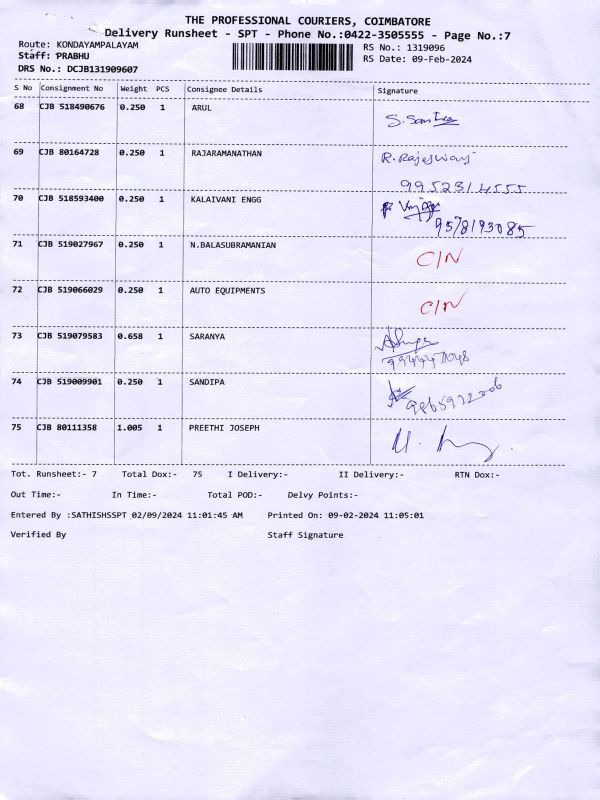 THE PROFESSIONAL COURIERS, COIMBATORE
Delivery Runsheet - SPT - Phone No.:0422-3505555 - Page No.:7
Route: KONDAYAMPALAYAM
RS No.: 1319096
Staff: PRABHU
RS Date: 09-Feb-2024
DRS No.: DCJB131909607
S No Consignment No Weight PCS Consignee Details Signature
68 CJB 518490676 0.250 1 ARUL
69 CJB 80164728 0.250 1 RAJARAMANATHAN R. Rajeswari
9952314555
70 CJB 518593400 0.250 1 KALAIVANI ENGG
9578193085
71 CJB 519027967 0.250 1 N.BALASUBRAMANIAN C/N
72 CJB 519066029 0.250 1 AUTO EQUIPMENTS C/N
73 CJB 519079583 0.658 1 SARANYA
74 CJB 519009901 0.250 1 SANDIPA
75 CJB 80111358 1.005 1 PREETHI JOSEPH
Tot. Runsheet:- 7 Total Dox:- 75 I Delivery:- II Delivery:- RTN Dox:-
Out Time:- In Time:- Total POD:- Delvy Points:-
Entered By :SATHISHSSPT 02/09/2024 11:01:45 AM Printed On: 09-02-2024 11:05:01
Verified By Staff Signature